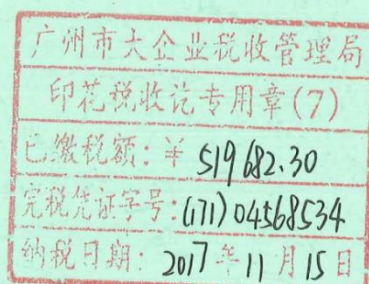 广州市大企业税收管理局
印花税收讫专用章(7)
已缴税额:¥ 519682.30
完税凭证字号:(171)04568534
纳税日期: 2017年11月15日